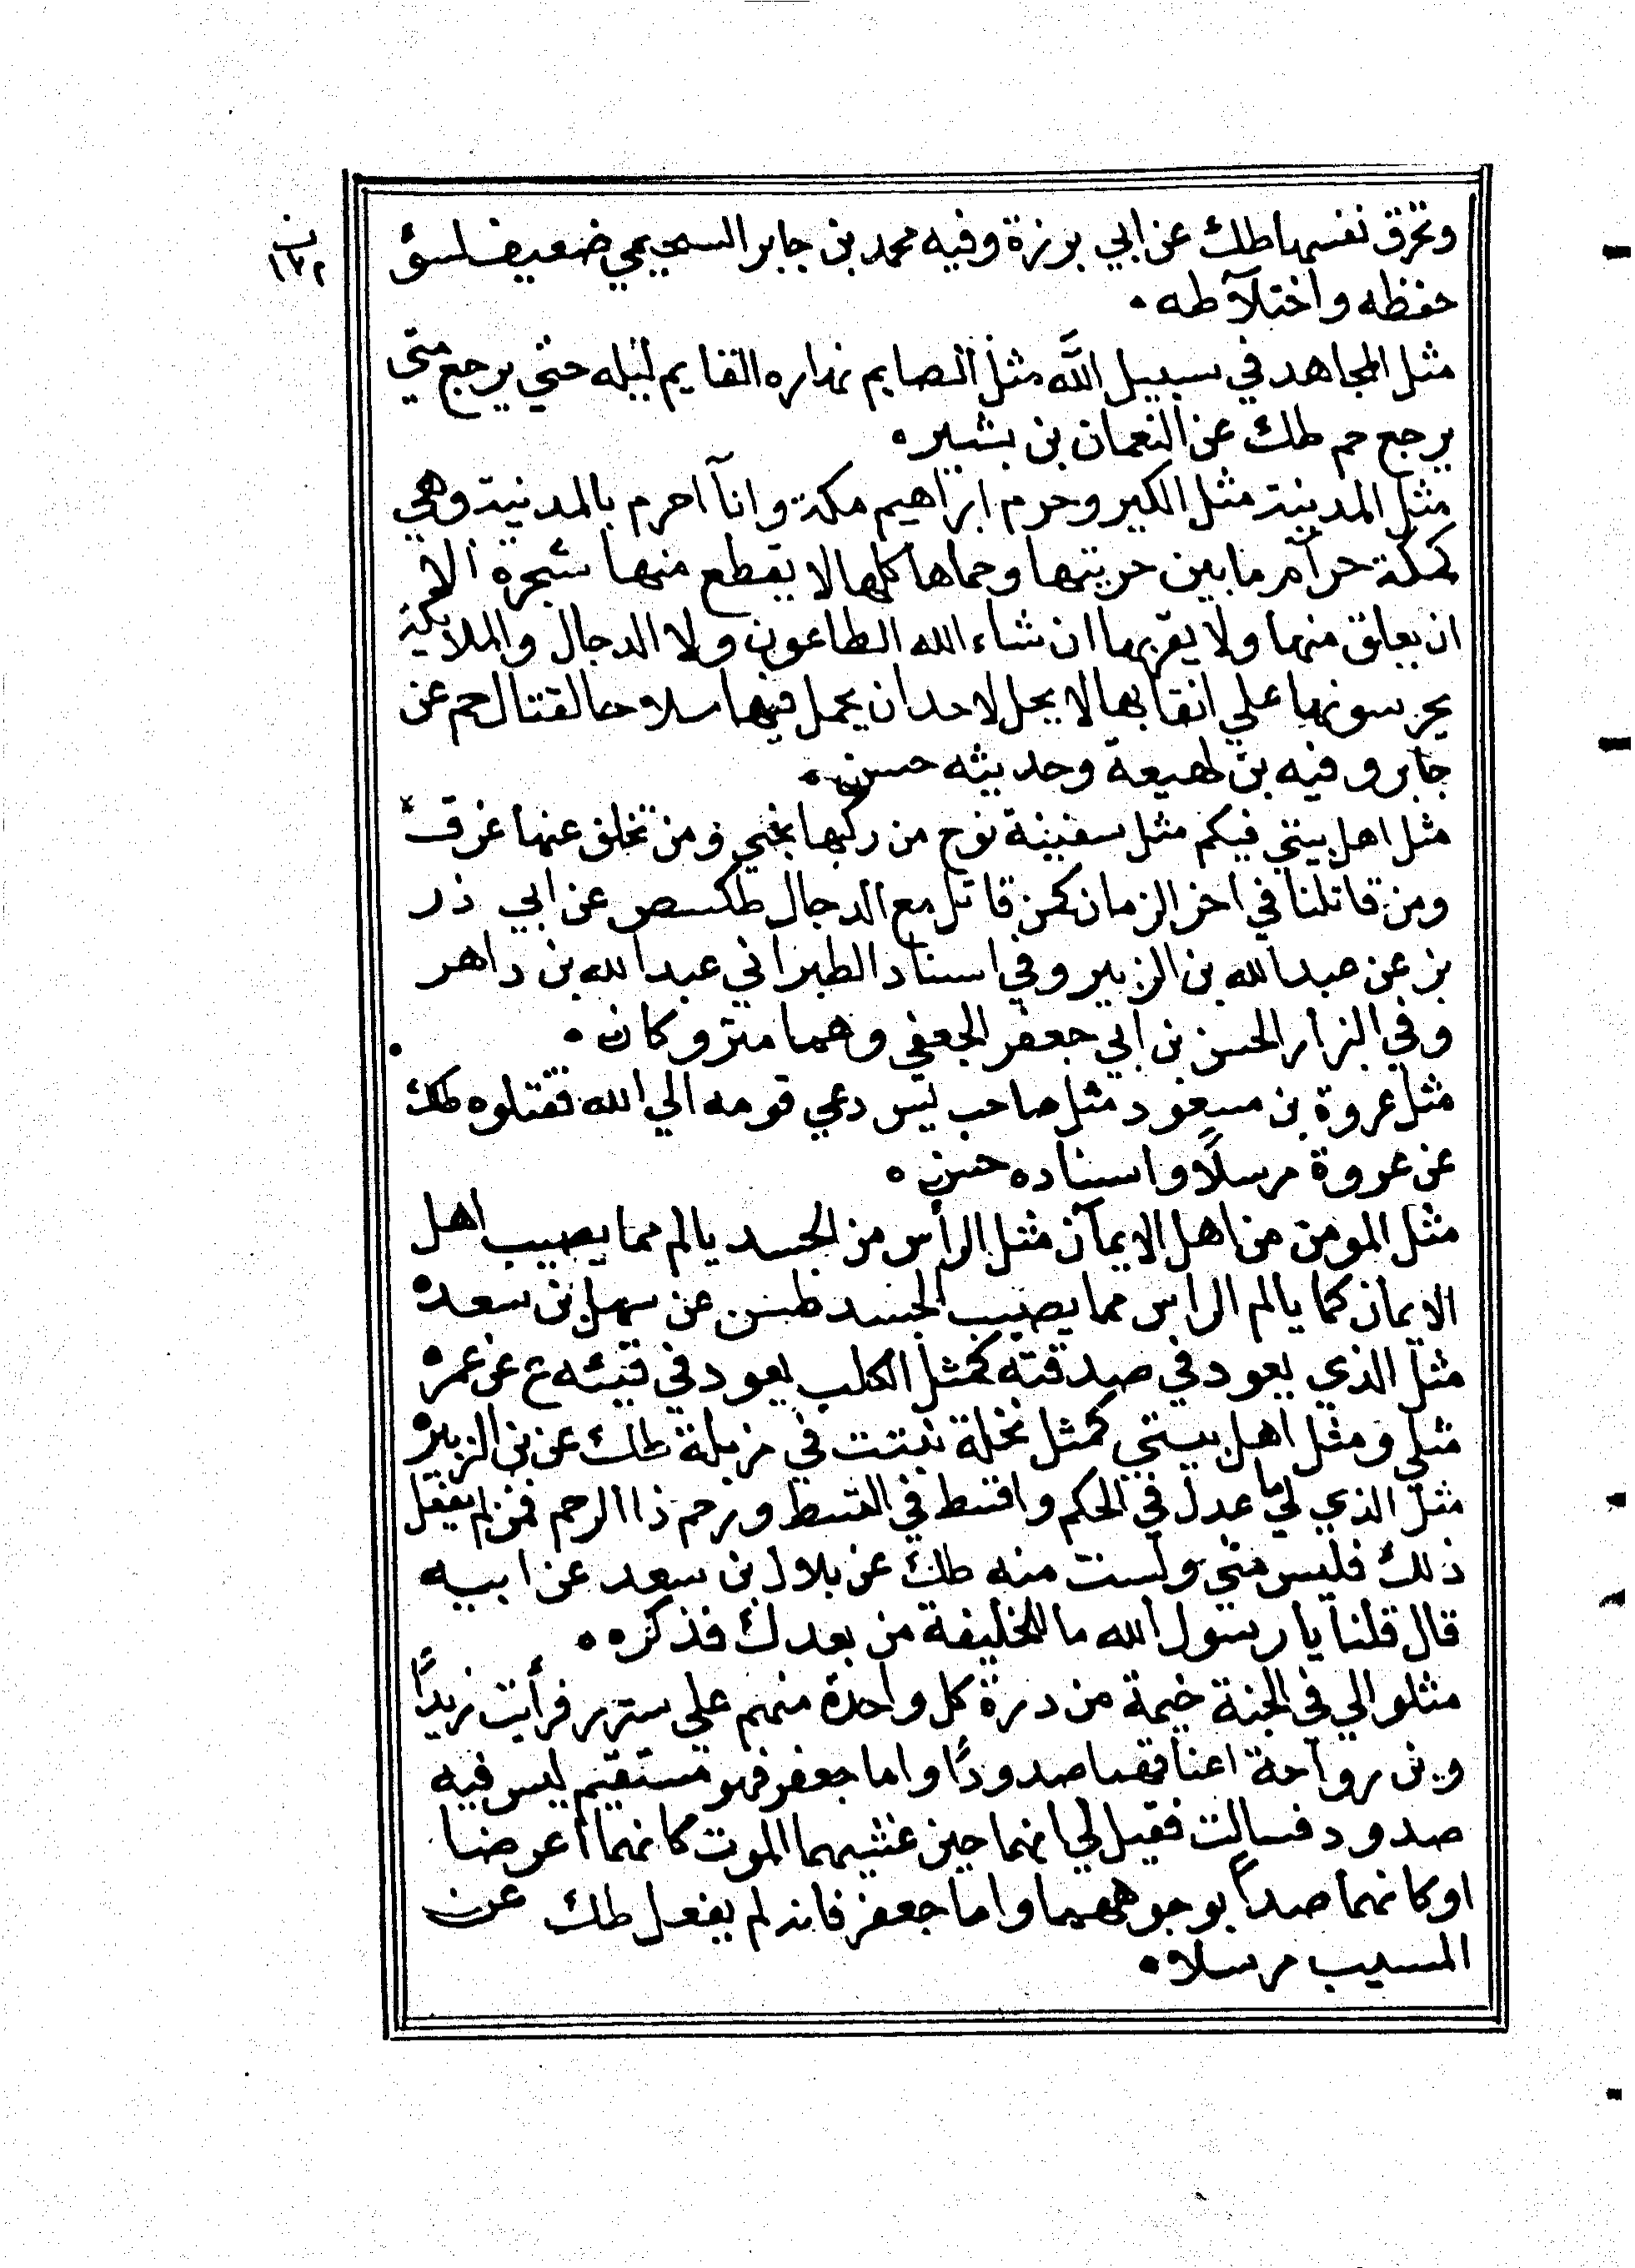 وتحرق نفسها طك عن ابي برزة وفيه محمد بن جابر السحيمي ضعيف لسؤ
حفظه واختلاطه ٠
مثل المجاهد في سبيل الله مثل الصايم نهاره القايم ليله حتي يرجع متي
يرجع حم طك عن النعمان بن بشير ٠
مثل المدينة مثل الكير وحرم ابراهيم مكة وانا احرم بالمدنية وهي
كمكة حرام ما بين حريتها وحماها كلها لا يقطع منها شجره الا
ان يعلق منها ولا يقربها ان شاء الله الطاعون ولا الدجال والملايكة
يحرسونها علي انقابها لا يحل لاحد ان يحمل فيها سلاحا لقتال حم عن
جابر وفيه بن لهيعة وحديثه حسن ٠
مثل اهل بيتي فيكم مثل سفينة نوح من ركبها نجي ومن تخلف عنها غرق
ومن قاتلنا في اخر الزمان كمن قاتل مع الدجال طكسص عن ابي ذر
بز عن عبد الله بن الزبير وفي اسناد الطبراني عبد الله بن داهر
وفي البزار الحسن بن ابي جعفر الجعفي وهما متروكان ٠
مثل عروة بن مسعود مثل صاحب يس دعي قومه الي الله فقتلوه طك
عن عروة مرسلاً واسناده حسن ٠
مثل المومن من اهل الايمان مثل الرأس من الجسد يالم مما يصيب اهل
الايمان كما يالم الراس مما يصيب الجسد طس عن سهل بن سعد ٠
مثل الذي يعود في صدقته كمثل الكلب يعود في قيئه ع عن عمر ٠
مثلي ومثل اهل بيتي كمثل نخلة نبتت في مزبلة طك عن بن الزبير ٠
مثل الذي لي ما عدل في الحكم واقسط في القسط ورحم ذا الرحم فمن لم يفعل
ذلك فليس مني ولست منه طك عن بلال بن سعد عن ابيه
قال قلنا يا رسول الله ما للخليفة من بعدك فذكره ٠
مثلوا لي في الجنة خيمة من درة كل واحدة منهم علي سترير فرأيت زيداً
وبن رواحة اعناقهما صدوداً واما جعفر فهو مستقيم ليس فيه
صدود فسالت فقيل لي انهما حين غشيهما الموت كانهما اعرضا
او كانهما صداً بوجوههما واما جعفر فانه لم يفعل طك عن
المسيب مرسلا ٠